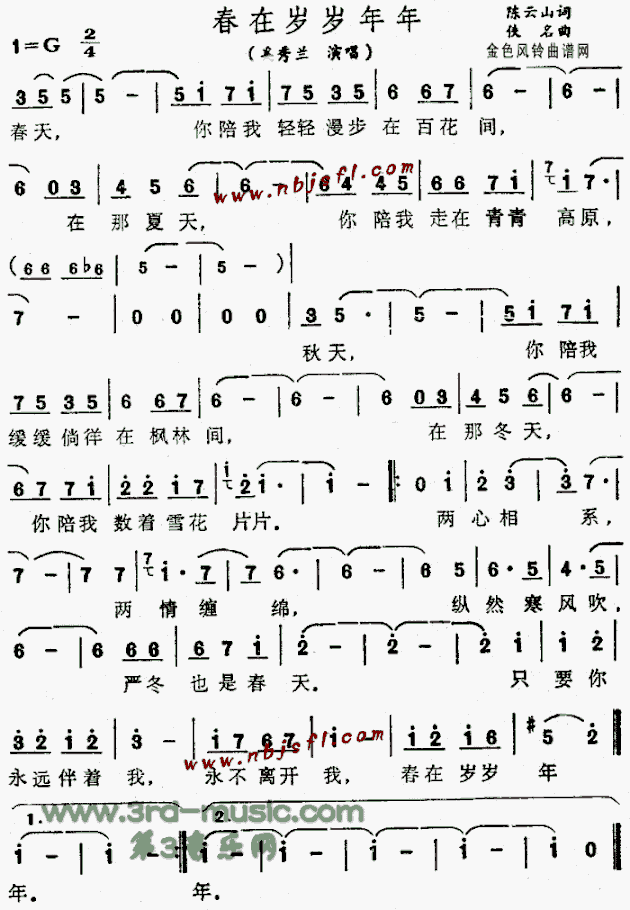 春在岁岁年年
1=G 2/4
（吴秀兰 演唱）
陈云山词
佚 名曲
金色风铃曲谱网
3 5 5 | 5 - | 5 i 7 i | 7 5 3 5 | 6 6 7 | 6 - | 6 - |
春天， 你陪我 轻轻 漫步 在 百花 间，
www.nbjcfl.com
6 0 3 | 4 5 6 | 6 - | 6 4 4 5 | 6 6 7 i | i 7· |
在 那 夏 天， 你 陪我 走在 青青 高原，
( 6 6 6 ♭6 | 5 - | 5 - ) |
7 - | 0 0 | 0 0 | 3 5· | 5 - | 5 i 7 i |
秋天， 你 陪我
7 5 3 5 | 6 6 7 | 6 - | 6 - | 6 0 3 | 4 5 6 | 6 - |
缓缓 倘徉 在 枫林 间， 在 那 冬 天，
6 7 7 i | 2 2 i 7 | 2 i· | i - |: 0 i | 2 3 | 3 7· |
你陪我 数着 雪花 片片。 两 心 相 系，
7 - | 7 7 | i· 7 | 7 6· | 6 - | 6 5 | 6· 5 | 4· 5 |
两 情 缠 绵， 纵 然 寒 风 吹，
6 - | 6 6 6 | 6 7 i | 2 - | 2 - | 2 i | i 2 |
严冬 也 是 春 天。 只 要 你
3 2 i 2 | 3 - | i 7 6 7 | i - | i 2 i 6 | #5 2 ‖
www.nbjcfl.com
永远 伴着 我， 永不 离开 我， 春在 岁岁 年
www.3rd-music.com
第3音乐网
1. 2.
i - | i - :| i - | i - | i - | i 0
年。 年。